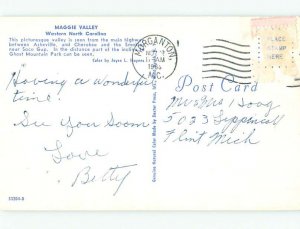 MAGGIE VALLEY
Western North Carolina
This picturesque valley is seen from the main highway
between Asheville, and Cherokee and the Smokies
near Soco Gap. In the distance part of the
Ghost Mountain Park can be seen.
Color by
MORGANTON,
AM
N.C.
PLACE
STAMP
HERE
Post Card
Having a wonderful
time!
See you soon
Love
Betty
Mr & Mrs
5033
Flint Mich
53304-B